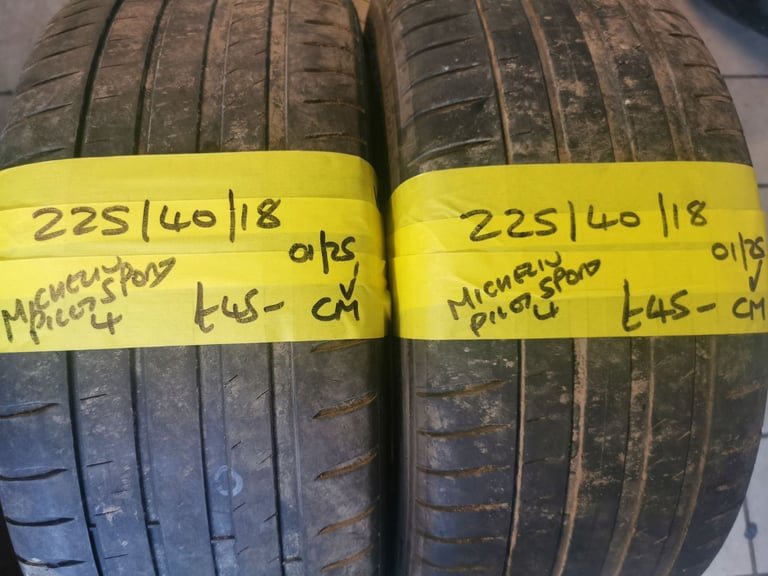 225/40/18
01/25
MICHELIN
PILOT SPORT
4
£45-
CM
225/40/18
01/25
MICHELIN
PILOT SPORT
4
£45-
CM